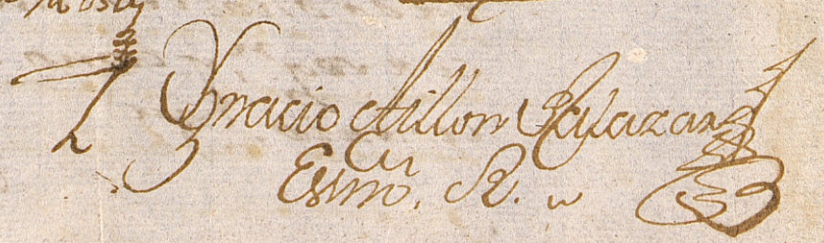 Ygnacio Aillon Salazar
Essno. R.